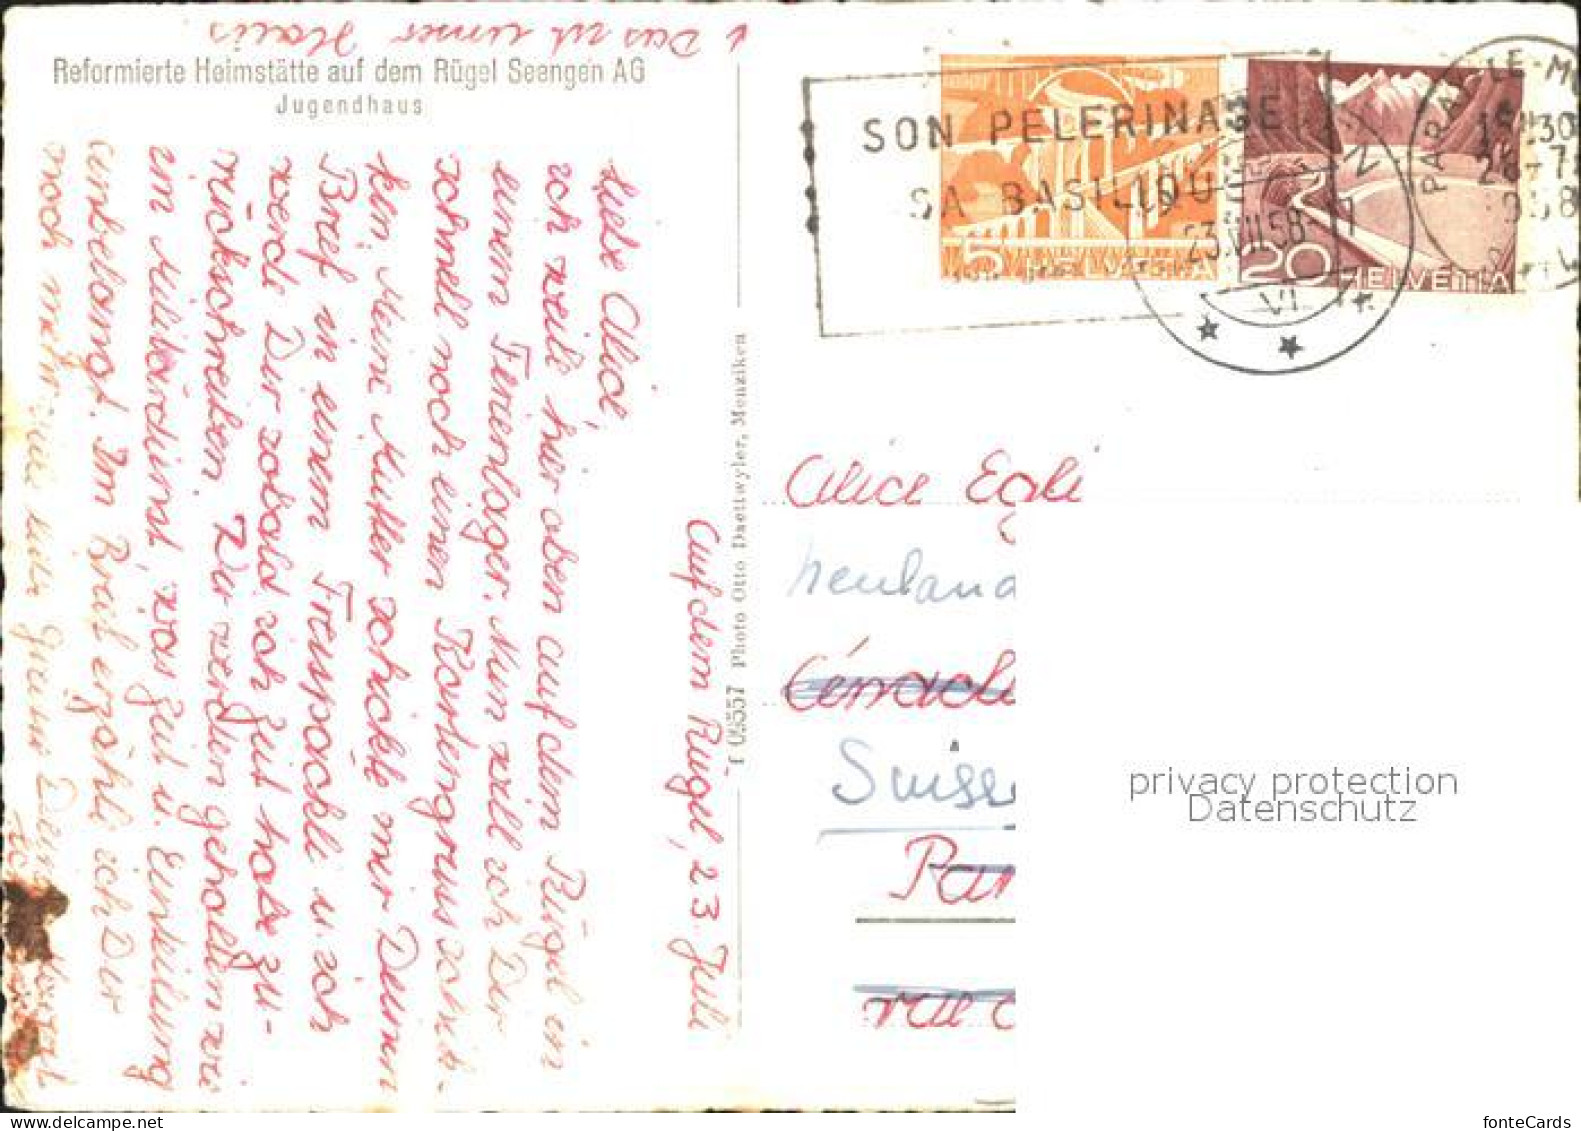 Das ist unser Haus
Reformierte Heimstätte auf dem Rügel Seengen AG
Jugendhaus
Auf dem Rügel, 23. Juli
Liebe Alice,
ich weile hier oben auf dem Rügel in
einem Ferienlager. Nun will ich Dir
schnell noch einen Kartengruss schik-
ken. Meine Mutter schickte mir Deinen
Brief in einem Fresspäckli u. ich
werde Dir sobald ich Zeit habe zu-
rückschreiben. Wir werden gehalten wie
im Militärdienst, was Zeit u. Einteilung
anbelangt. Im Brief erzähle ich Dir
noch mehr. Viele liebe Grüsse Deine
f 09557 Photo Otto Daettwyler, Menziken
SON PELERINAGE
SA BASILIQUE
23.VII.58
PARAY LE-M
1530
26-7
1958
5 HELVETIA
20 HELVETIA
Alice Egli
Suisse
privacy protection
Datenschutz
fonteCards